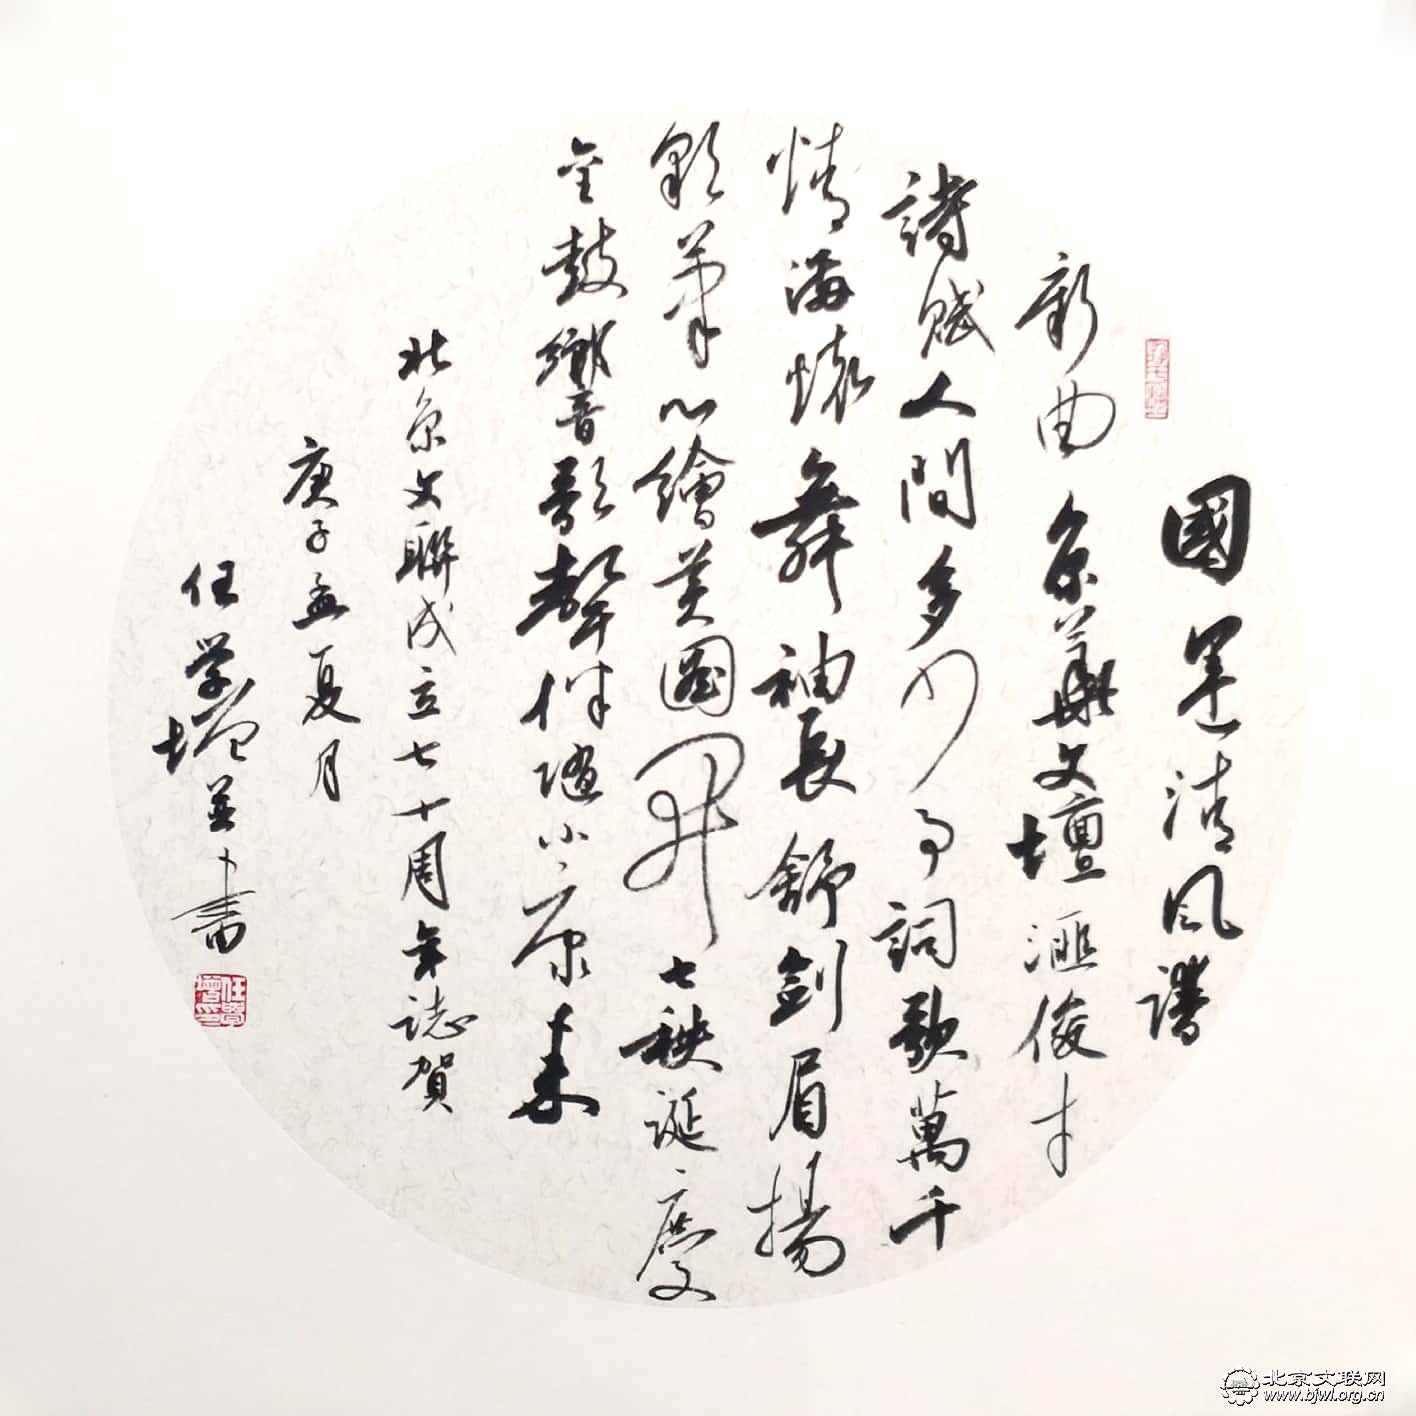 國運清風譜
新曲京華文壇滙俊才
詩賦人間多少事詞歌萬千
情滿懷舞袖長舒劍眉揚
彩筆心繪美圖開七秩誕慶
金鼓響歌聲伴隨小康來
北京文聯成立七十周年誌賀
庚子孟夏月
任学增並書
任學增印
北京文联网
www.bjwl.org.cn